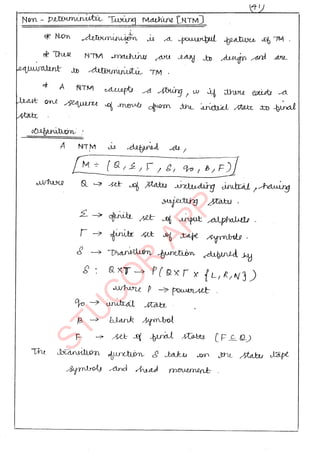 (41)
Non - Deterministic Turing Machine [NTM]
* Non determinism is a powerful feature of TM.
* These NTM machines are easy to design and are
equivalent to deterministic TM.
* A NTM accepts a string, w if there exists a
least one sequence of moves from the initial state to final
state.
Definition:
A NTM is defined as,
M = (Q, Σ, Γ, δ, q0, B, F)
where Q → set of states including initial, halting
rejecting states.
Σ → finite set of input alphabets.
Γ → finite set of tape symbols.
δ → Transition function defined by
δ : Q×Γ → P(Q×Γ×{L,R,N})
where P → powerset.
q0 → initial state.
B → blank symbol
F → set of final states (F ⊆ Q)
The transition function δ takes on the states tape
symbols and head movement.
STUCOR APP